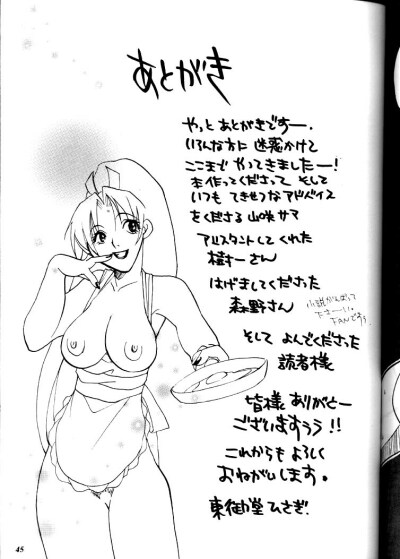 あとがき
やっと あとがきですー.
いろんな方に 迷惑かけて
ここまで やってきましたー!
本作ってくださって そして
いつも てきせつな アドバイス
をくださる 山咲サマ
アシスタントしてくれた
さん
はげましてくださった
森野さん
小説がんばって
下さーい
FANですぅ
そして よんでくださった
読者様
皆様 ありがとー
ございますぅぅ!!
これからも よろしく
おねがいします。
東御堂 ひさぎ.
45